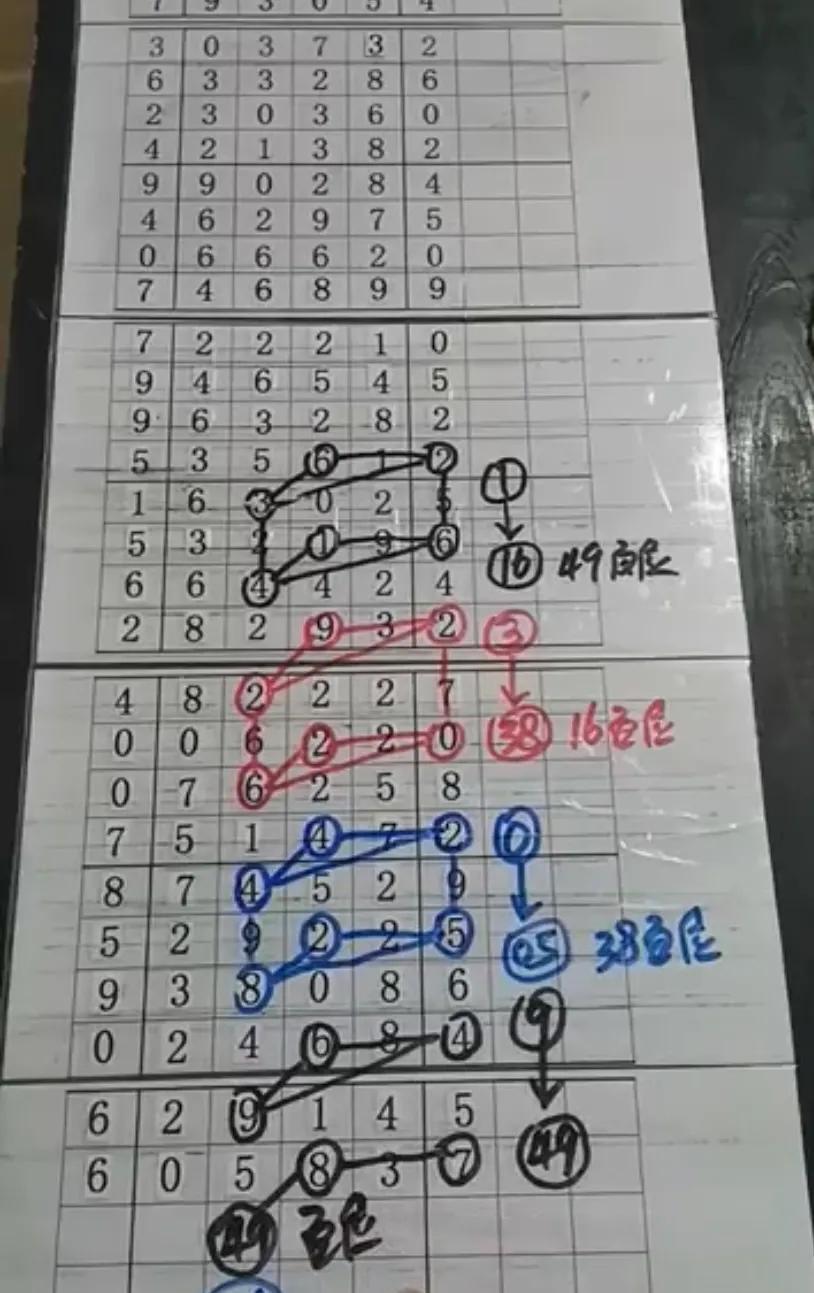 7 9 3 0 5 4
3 0 3 7 3 2
6 3 3 2 8 6
2 3 0 3 6 0
4 2 1 3 8 2
9 9 0 2 8 4
4 6 2 9 7 5
0 6 6 6 2 0
7 4 6 8 9 9
7 2 2 2 1 0
9 4 6 5 4 5
9 6 3 2 8 2
5 3 5 6 1 2
1 6 3 0 2 5 1
5 3 2 1 9 6 16 49百尾
6 6 4 4 2 4
2 8 2 9 3 2 3
4 8 2 2 2 7
0 0 6 2 2 0 38 16百尾
0 7 6 2 5 8
7 5 1 4 7 2 0
8 7 4 5 2 9
5 2 9 2 2 5 05 38百尾
9 3 8 0 8 6
0 2 4 6 8 4 9
6 2 9 1 4 5
6 0 5 8 3 7 49
49 百尾